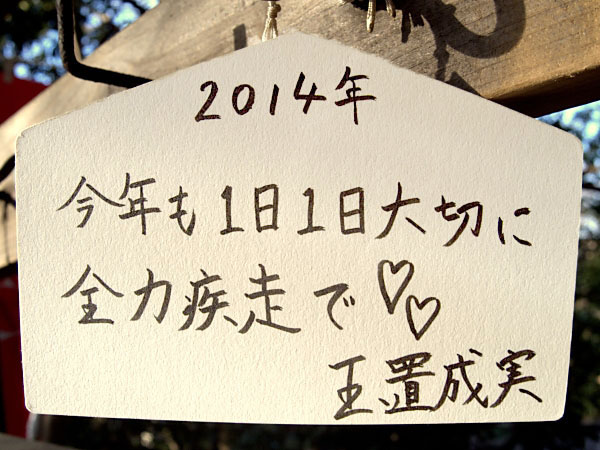 2014年
今年も1日1日大切に
全力疾走で♡♡
玉置成実